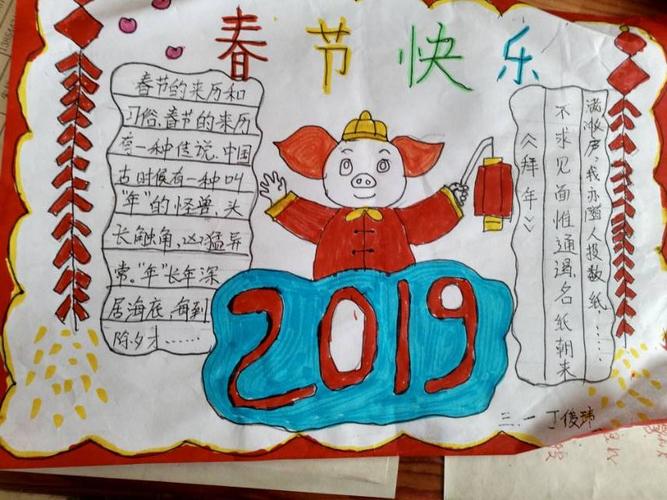 春节快乐
春节的来历和
习俗,春节的来历
有一种传说,中国
古时候有一种叫
"年"的怪兽,头
长触角,凶猛异
常。"年"长年深
居海底,每到
除夕才……
《拜年》
不求见面惟通遏,名纸朝来
满敝庐,我亦随人投数纸……
2019
三.一 丁俊玮